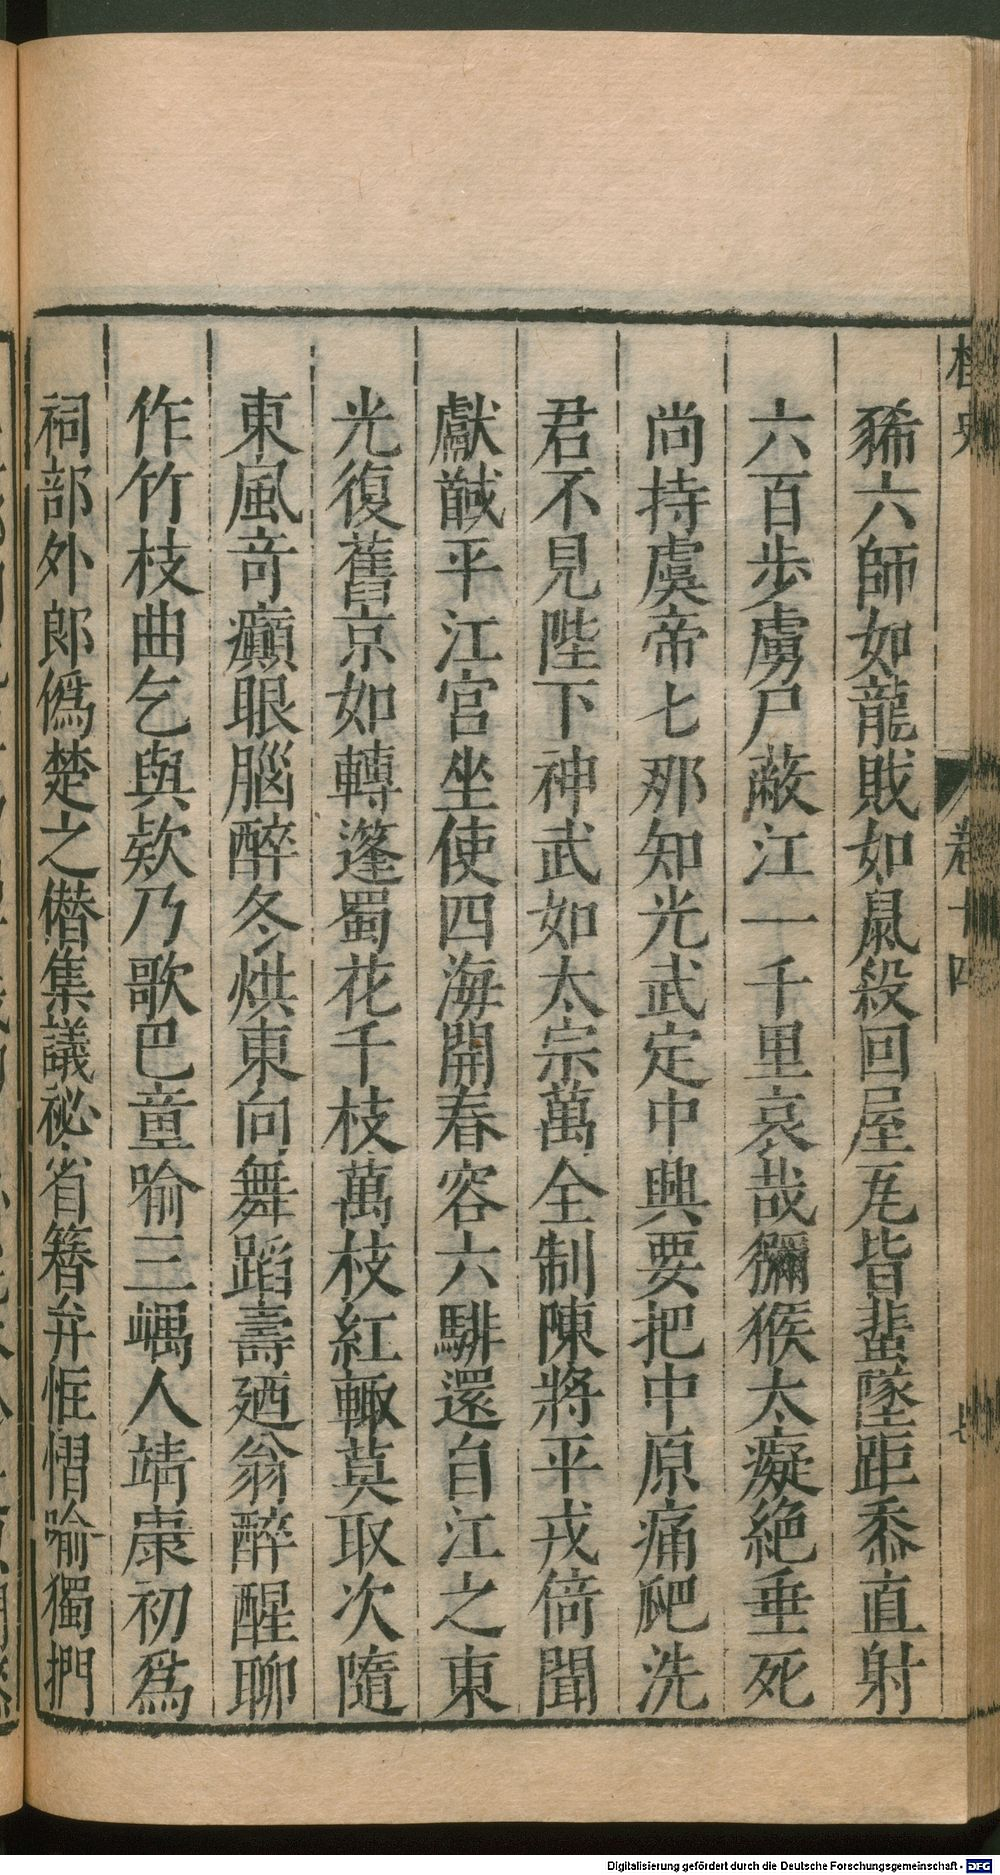 桯史
卷十四
豨六師如龍賊如鼠殺回屋瓦皆蜚墜距黍直射
六百步虜尸蔽江一千里哀哉獼猴太癡絶垂死
尚持虞帝七那知光武定中興要把中原痛爬洗
君不見陛下神武如太宗萬全制陳將平戎倚聞
獻馘平江宫坐使四海開春容六騑還自江之東
光復舊京如轉蓬蜀花千枝萬枝紅輙莫取次隨
東風竒癲眼腦醉冬烘東向舞蹈壽廼翁醉醒聊
作竹枝曲乞與欸乃歌巴童喻三嵎人靖康初爲
祠部外郎僞楚之僣集議祕省簪弁恇慴喻獨捫
Digitalisierung gefördert durch die Deutsche Forschungsgemeinschaft - DFG